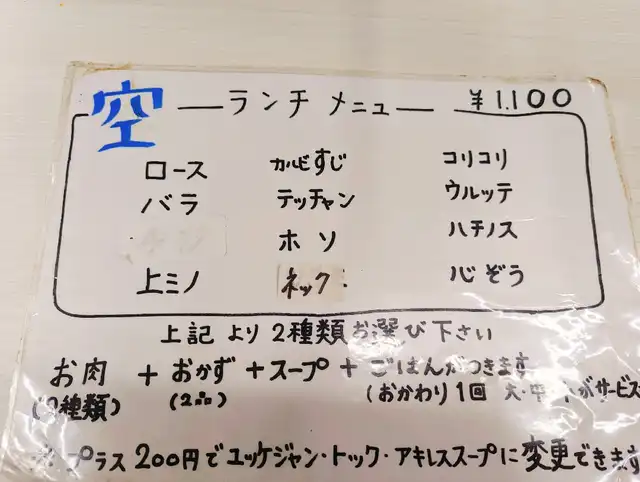 空 ランチ メニュー ¥1.100
ロース カルビすじ コリコリ
バラ テッチャン ウルッテ
ホソ ハチノス
上ミノ ネック 心ぞう
上記 より 2種類お選び下さい
お肉 + おかず + スープ + ごはんがつきます
(2種類) (2品) (おかわり1回 大・中・小がサービス
※プラス200円でユッケジャン・トック・アキレススープに変更できます